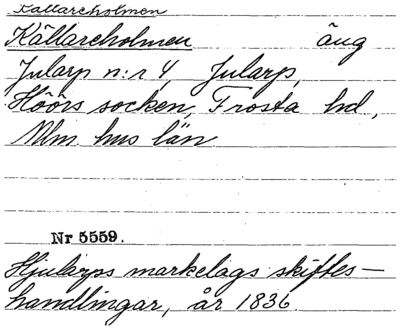 Källareholmen
Källareholmen äng
Jularp n:r 4, Jularp,
Höörs socken, Frosta hd,
Mlm hus län
Nr 5559.
Hjularps markelags skiftes-
handlingar, år 1836.